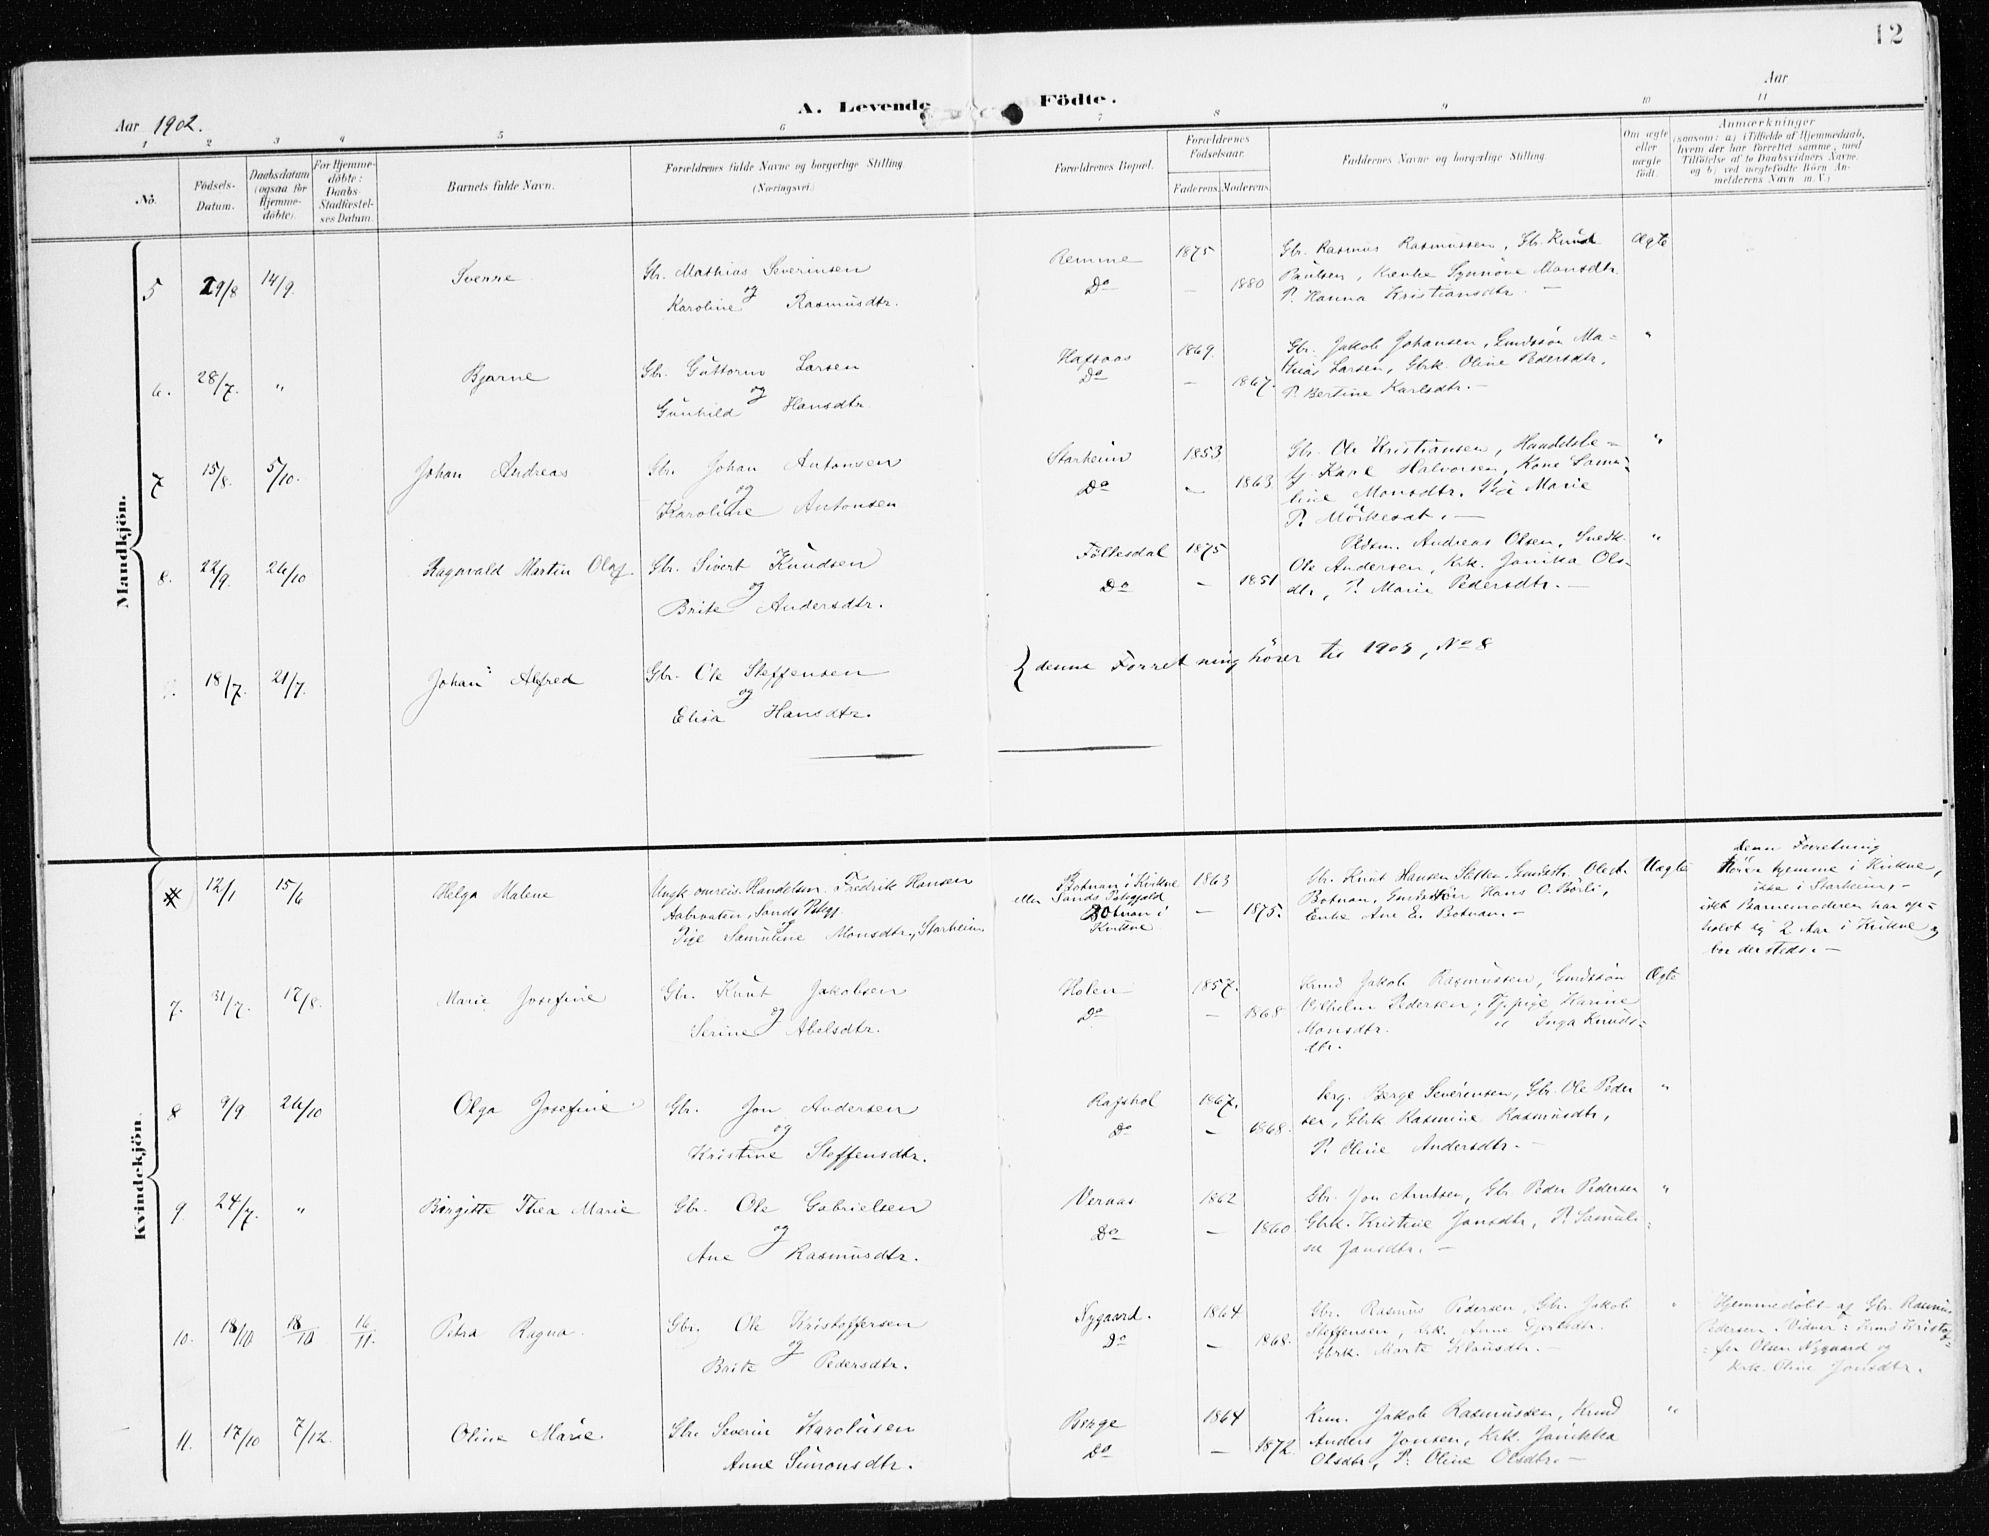 12
Aar 1902.
A. Levende Födte.
Aar
1 2 3 4 5 6 7 8 9 10 11
No.
Födsels-Datum.
Daabsdatum (ogsaa for Hjemmedöbte).
For Hjemmedöbte: Daabs Stadfæstelses Datum.
Barnets fulde Navn.
Forældrenes fulde Navne og borgerlige Stilling (Næringsvei.)
Forældrenes Bopæl.
Forældrenes Födselsaar.
Faderens. Moderens.
Faddernes Navne og borgerlige Stilling
Om ægte eller uægte födt.
Anmærkninger
(saasom: a) i Tilfælde af Hjemmedaab,
hvem der har forrettet samme, med
Tilföielse af to Daabsvidners Navne.
og b) ved uægtefödte Börn An-
melderens Navn m. V.)
Mandkjön.
5 29/8 14/9 Sverre
Gbr. Mathias Severinsen
og
Karoline Rasmusdtr.
Remme 1875
Do — 1880
Gbr. Rasmus Rasmussen, Gbr. Knud
Paulsen, Synnöve Monsdtr
P. Hanna Kristiansdtr. —
Ægte
6. 28/7. " Bjarne
Gbr. Guttorm Larsen
og
Gunhild Hansdtr.
1869.
Do — 1867.
Gbr. Jakob Johansen, Gmdssön Ma-
thias Larsen, Gbrk. Oline Pedersdtr,
P. Bertine Karlsdtr. —
"
7 15/8. 5/10. Johan Andreas
Gbr. Johan Antonsen
og
Karoline Antonsen
Starheim 1853
Do — 1863
Gbr. Ole Kristiansen, Handelsbe-
tj. Karl Halvorsen, Kone Samu-
line Monsdtr. Pige Marie
P. —
"
8. 22/9. 26/10 Ragnvald Martin Olaf
Gbr. Sivert Knudsen
og
Brite Andersdtr.
Föllesdal 1875
Do — 1851
Pedsm. Andreas Olsen, Snedk.
Ole Andersen, Krk. Janikka Ols-
dtr, P. Marie Pedersdtr. —
"
18/7. 21/7. Johan Alfred
Gbr. Ole Steffensen
og
Elisa Hansdtr.
} denne Forretning hörer til 1903, No 8
Kvindekjön.
12/1 15/6 Helga Malene
Ungk. omreis. Handelsm. Fredrik Hansen
Sands
Pige Samuline Monsdtr, Starheim
Botnan i Kvikne
eller Sands
Botnan i
Kvikne
1863
— 1875.
Gbr. Knut Hansen
Botnan, Hans O. Börli,
Enke Ane E. Botnan. —
Uægte
Denne Forretning
hörer hjemme i Kvikne,
ikke i Starheim, —
idet Barnemoderen har op-
holdt sig 2 Aar i Kvikne og
bor dersteds. —
7. 31/7. 17/8. Marie Josefine
Gbr. Knut Jakobsen
og
Serine Abelsdtr.
Holen 1857.
Do — 1868
Krmd Jakob Rasmussen, Gmdssön
Vilhelm Pedersen, Tj.pige Karine
Monsdtr. " Inga Knuds-
dtr.
Ægte
8 9/9 26/10 Olga Josefine
Gbr. Jon Andersen
og
Kristine Steffensdtr.
Rafshol 1867.
Do — 1868.
Berge Severinsen, Gbr. Ole Peder
sen, Gbrk Rasmine Rasmusdtr,
P. Oline Andersdtr. —
"
9. 24/7. " Birgitte Thea Marie
Gbr. Ole Gabrielsen
og
Ane Rasmusdtr.
Vernas 1862
Do — 1860
Gbr. Jon Arntsen, Gbr Peder Pedersen
Gbrk. Kristine Jonsdtr, P. Samuli-
ne Jonsdtr. —
"
10. 18/10 18/10 16/11. Petra Ragna
Gbr. Ole Kristoffersen
og
Brite Pedersdtr.
Nygaard. 1864
Do — 1868.
Gbr. Rasmus Pedersen, Gbr. Jakob
Steffensen, Krk. Anne Gjertsdtr.
Gbrk. Marte Klausdtr. —
"
Hjemmedöbt af Gbr. Rasmus
Pedersen. Vidner: Krmd Kristof-
fer Olsen Nygaard og
Krk. Oline Jonsdtr.
11. 17/10 7/12. Oline Marie
Gbr. Severin Karolusen
Anne Simonsdtr.
Berge 1864
Do — 1872.
Krm. Jakob Rasmussen, Krmd
Anders Jonsen, Krk. Janikka
Olsdtr, P. Oline Olsdtr. —
"